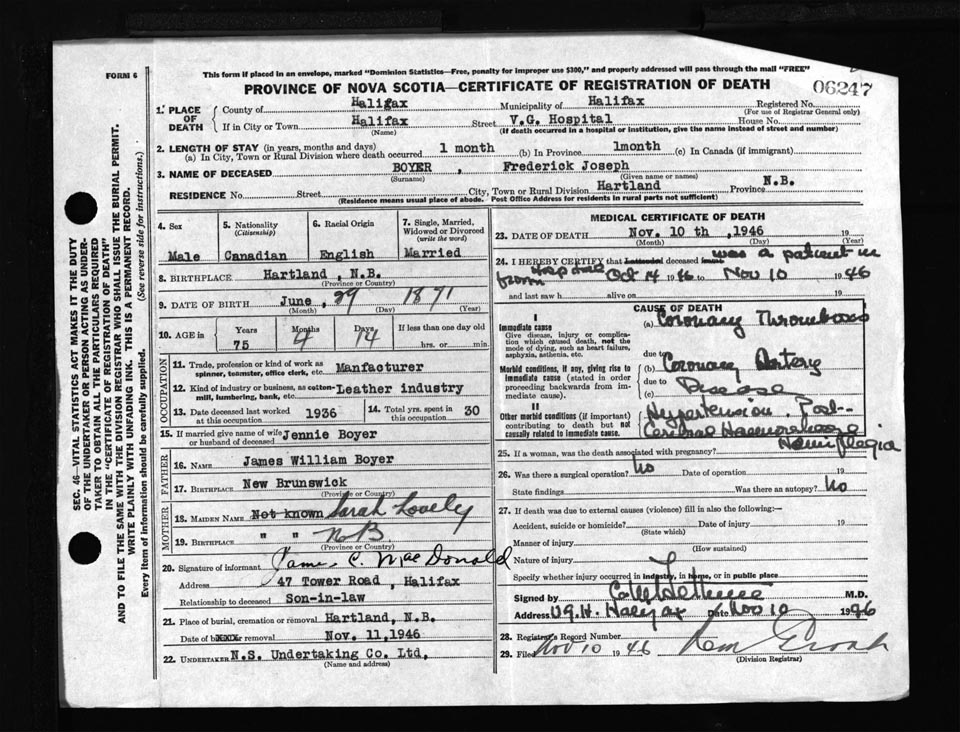 FORM 6
This form if placed in an envelope, marked "Dominion Statistics—Free, penalty for improper use $300," and properly addressed will pass through the mail "FREE"
PROVINCE OF NOVA SCOTIA—CERTIFICATE OF REGISTRATION OF DEATH
06247
1. PLACE OF DEATH
County of Halifax Municipality of Halifax Registered No.
(For use of Registrar General only)
If in City or Town Halifax Street V.G. Hospital House No.
(Name) (If death occurred in a hospital or institution, give the name instead of street and number)
2. LENGTH OF STAY (in years, months and days)
(a) In City, Town or Rural Division where death occurred 1 month (b) In Province 1month (c) In Canada (if immigrant)
3. NAME OF DECEASED BOYER , Frederick Joseph
(Surname) (Given name or names)
RESIDENCE No. Street City, Town or Rural Division Hartland Province N.B.
(Residence means usual place of abode. Post Office Address for residents in rural parts not sufficient)
4. Sex Male
5. Nationality (Citizenship) Canadian
6. Racial Origin English
7. Single, Married, Widowed or Divorced (write the word) Married
8. BIRTHPLACE Hartland , N.B.
(Province or Country)
9. DATE OF BIRTH June , 29 1871
(Month) (Day) (Year)
10. AGE in Years 75 Months 4 Days 14 If less than one day old hrs. or min.
OCCUPATION
11. Trade, profession or kind of work as spinner, teamster, office clerk, etc. Manfacturer
12. Kind of industry or business, as cotton-mill, lumbering, bank, etc. Leather industry
13. Date deceased last worked at this occupation 1936
14. Total yrs. spent in this occupation 30
15. If married give name of wife or husband of deceased Jennie Boyer
FATHER
16. NAME James William Boyer
17. BIRTHPLACE New Brunswick
(Province or Country)
MOTHER
18. MAIDEN NAME Not known Sarah Lovely
19. BIRTHPLACE " " N B
(Province or Country)
20. Signature of informant James C. MacDonald
Address 47 Tower Road , Halifax
Relationship to deceased Son-in-law
21. Place of burial, cremation or removal Hartland, N.B.
Date of burial or removal Nov. 11,1946
22. UNDERTAKER N.S. Undertaking Co. Ltd,
(Name and address)
MEDICAL CERTIFICATE OF DEATH
23. DATE OF DEATH Nov. 10 th ,1946 19
(Month) (Day) (Year)
24. I HEREBY CERTIFY that I attended deceased was a patient in
from Hospital Oct 14 1946 to Nov 10 1946
and last saw h alive on 19
CAUSE OF DEATH
I
Immediate cause
Give disease, injury or complication which caused death, not the mode of dying, such as heart failure, asphyxia, asthenia, etc.
(a) Coronary Thrombosis
due to
Morbid conditions, if any, giving rise to immediate cause (stated in order proceeding backwards from immediate cause).
(b) Coronary Artery
due to
(c) Disease
II
Other morbid conditions (if important) contributing to death but not causally related to immediate cause.
Hypertension. Post-
Cerebral Haemorrhage
Hemiplegia
25. If a woman, was the death associated with pregnancy?
26. Was there a surgical operation? No Date of operation 19
State findings Was there an autopsy? No
27. If death was due to external causes (violence) fill in also the following:—
Accident, suicide or homicide? Date of injury 19
(State which)
Manner of injury
(How sustained)
Nature of injury
Specify whether injury occurred in industry, in home, or in public place
Signed by M.D.
Address V.G.H. Halifax Date Nov 10 1946
28. Registrar's Record Number
29. Filed Nov 10 1946
(Division Registrar)
SEC. 46—VITAL STATISTICS ACT MAKES IT THE DUTY
OF THE UNDERTAKER OR PERSON ACTING AS UNDER-
TAKER TO OBTAIN ALL THE PARTICULARS REQUIRED
IN THE "CERTIFICATE OF REGISTRATION OF DEATH"
AND TO FILE THE SAME WITH THE DIVISION REGISTRAR WHO SHALL ISSUE THE BURIAL PERMIT.
WRITE PLAINLY WITH UNFADING INK. THIS IS A PERMANENT RECORD.
Every item of information should be carefully supplied. (See reverse side for instructions.)